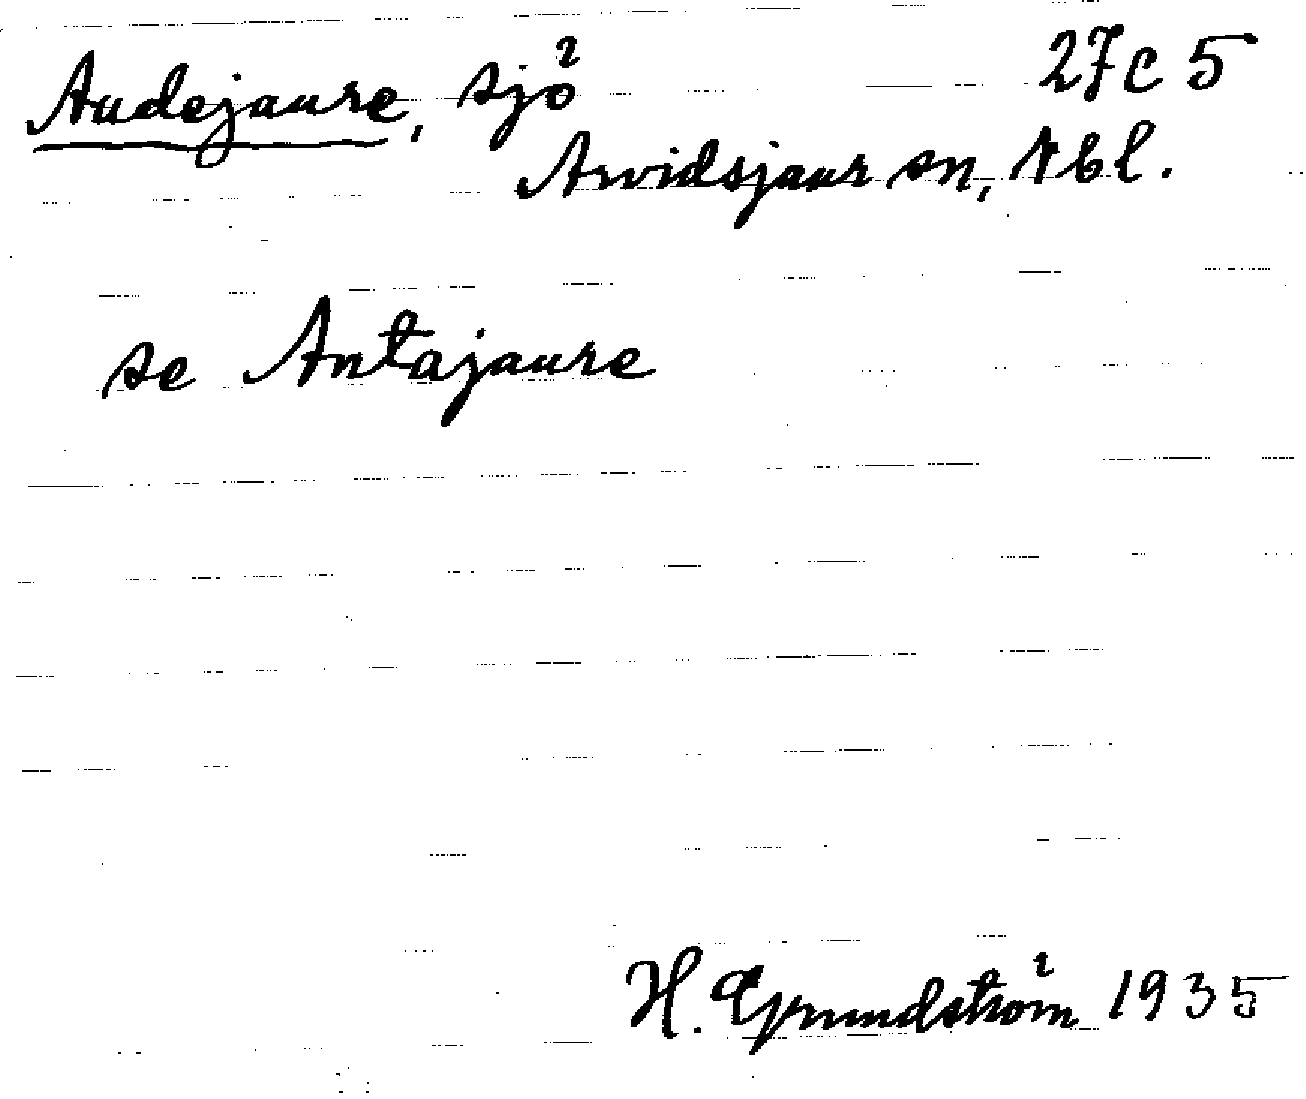 Audejaure, sjö 27c5
Arvidsjaur sn, Nbl.
se Antajaure
H. Grundström 1935